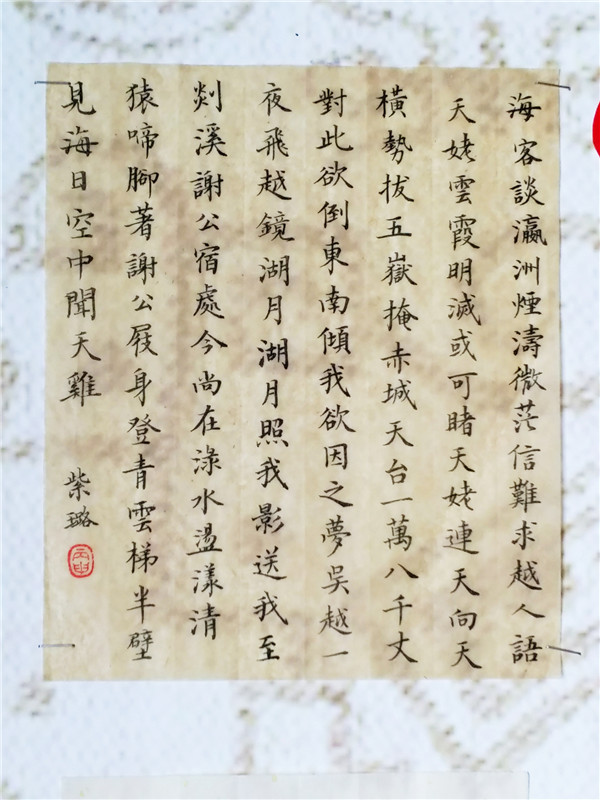 海客談瀛洲煙濤微茫信難求越人語
天姥雲霞明滅或可睹天姥連天向天
橫勢拔五嶽掩赤城天台一萬八千丈
對此欲倒東南傾我欲因之夢吳越一
夜飛越鏡湖月湖月照我影送我至
剡溪謝公宿處今尚在淥水盪漾清
猿啼腳著謝公屐身登青雲梯半壁
見海日空中聞天雞
紫璐